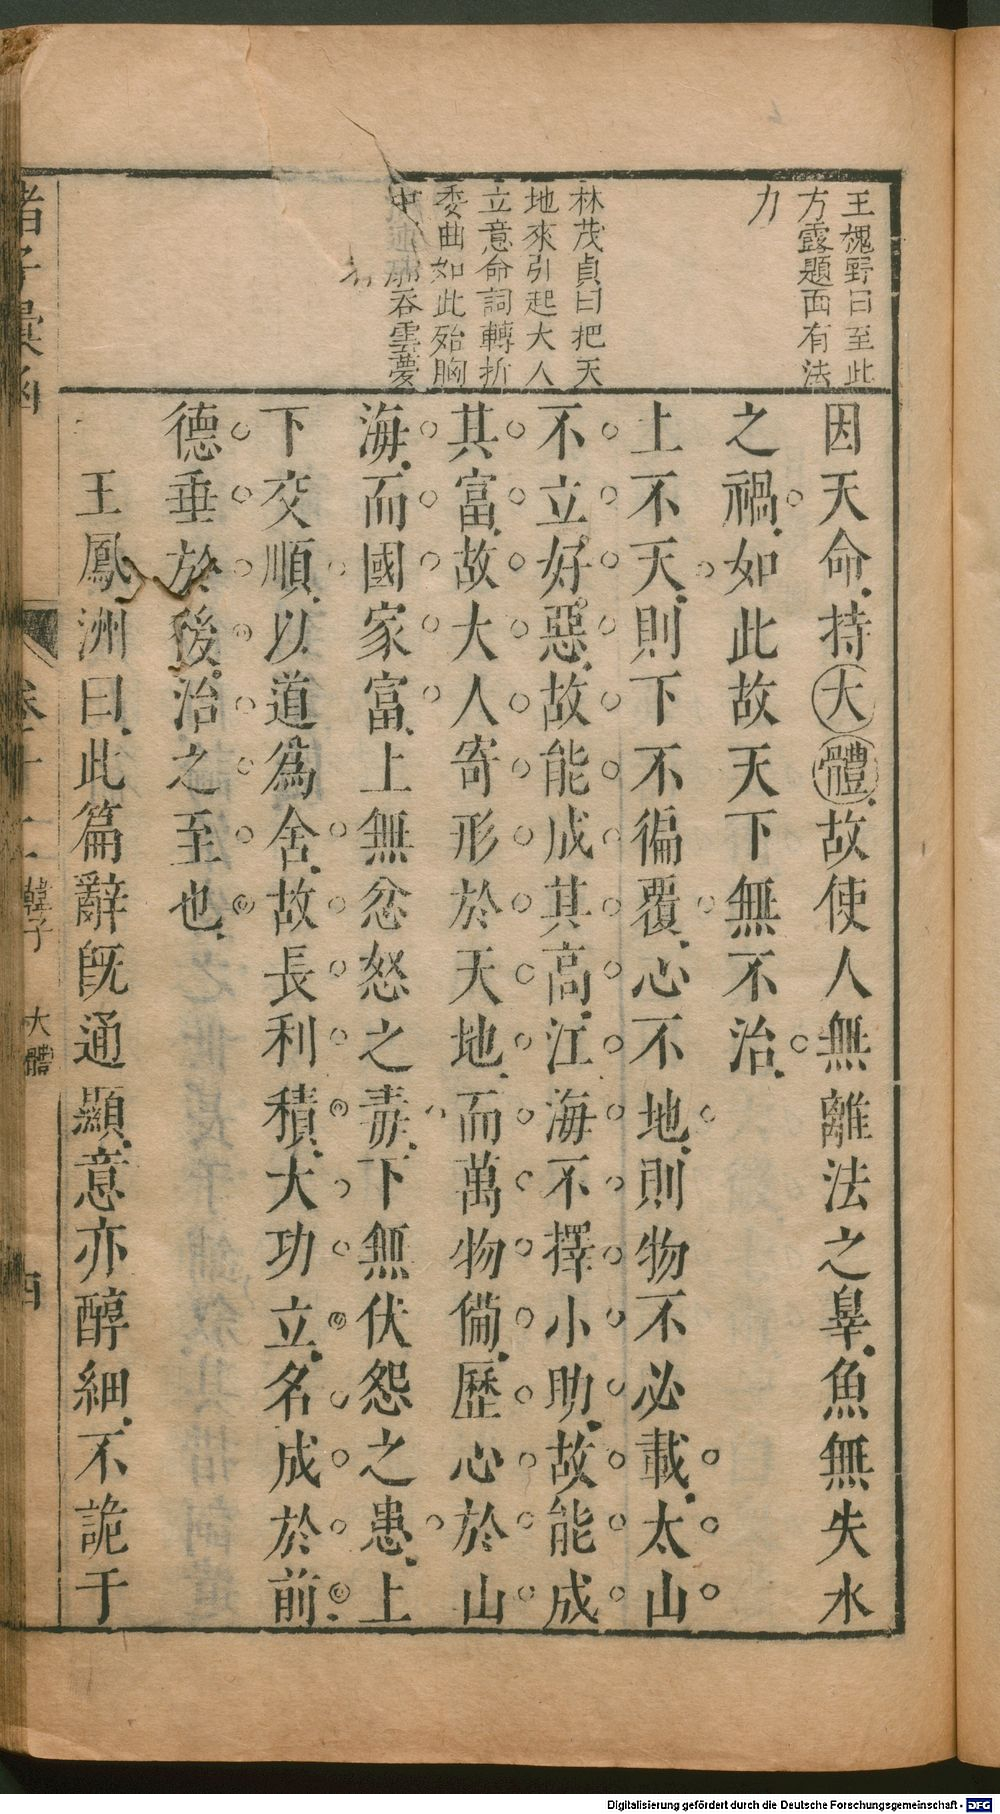 王槐野曰至此
方露題面有法
力
林茂貞曰把天
地來引起大人
立意命詞轉折
委曲如此殆胸
吞雲夢
因天命持大體故使人無離法之辠魚無失水
之禍如此故天下無不治
上不天則下不徧覆心不地則物不必載太山
不立好惡故能成其高江海不擇小助故能成
其富故大人寄形於天地而萬物備歷心於山
海而國家富上無忿怒之毒下無伏怨之患上
下交順以道為舍故長利積大功立名成於前
德垂於後治之至也
王鳳洲曰此篇辭旣通顯意亦醇細不詭于
諸子彙函
卷二十二 韓子 大體
Digitalisierung gefördert durch die Deutsche Forschungsgemeinschaft - DFG